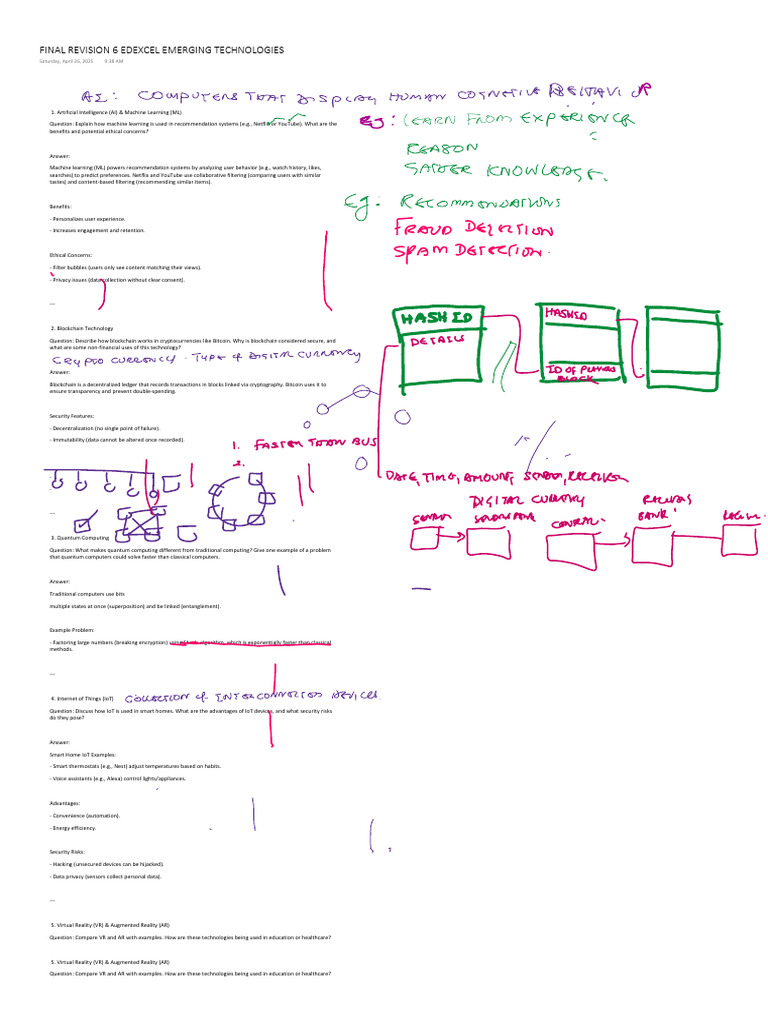 FINAL REVISION 6 EDEXCEL EMERGING TECHNOLOGIES
Saturday, April 26, 2025 9:38 AM
AI: COMPUTERS THAT DISPLAY HUMAN COGNITIVE BEHAVIOR
1. Artificial Intelligence (AI) & Machine Learning (ML)
Question: Explain how machine learning is used in recommendation systems (e.g., Netflix or YouTube). What are the
benefits and potential ethical concerns?
Eg: LEARN FROM EXPERIENCE
REASON
GATHER KNOWLEDGE.
Answer:
Machine learning (ML) powers recommendation systems by analyzing user behavior (e.g., watch history, likes,
searches) to predict preferences. Netflix and YouTube use collaborative filtering (comparing users with similar
tastes) and content-based filtering (recommending similar items).
Eg: RECOMMENDATIONS
FRAUD DETECTION
SPAM DETECTION.
Benefits:
- Personalizes user experience.
- Increases engagement and retention.
Ethical Concerns:
- Filter bubbles (users only see content matching their views).
- Privacy issues (data collection without clear consent).
---
HASH ID
DETAILS
HASH ID
ID OF PREVIOUS
BLOCK
2. Blockchain Technology
Question: Describe how blockchain works in cryptocurrencies like Bitcoin. Why is blockchain considered secure, and
what are some non-financial uses of this technology?
CRYPTO CURRENCY - TYPE OF DIGITAL CURRENCY
Answer:
Blockchain is a decentralized ledger that records transactions in blocks linked via cryptography. Bitcoin uses it to
ensure transparency and prevent double-spending.
Security Features:
- Decentralization (no single point of failure).
- Immutability (data cannot be altered once recorded).
1. FASTER THAN BUS
2.
DATE, TIME, AMOUNT, SENDER, RECEIVER
DIGITAL CURRENCY
SENDER
CENTRAL
BANK
---
3. Quantum Computing
Question: What makes quantum computing different from traditional computing? Give one example of a problem
that quantum computers could solve faster than classical computers.
Answer:
Traditional computers use bits
multiple states at once (superposition) and be linked (entanglement).
Example Problem:
- Factoring large numbers (breaking encryption) using Shor's algorithm, which is exponentially faster than classical
methods.
---
4. Internet of Things (IoT)
COLLECTION OF INTERCONNECTED DEVICES
Question: Discuss how IoT is used in smart homes. What are the advantages of IoT devices, and what security risks
do they pose?
Answer:
Smart Home IoT Examples:
- Smart thermostats (e.g., Nest) adjust temperatures based on habits.
- Voice assistants (e.g., Alexa) control lights/appliances.
Advantages:
- Convenience (automation).
- Energy efficiency.
Security Risks:
- Hacking (unsecured devices can be hijacked).
- Data privacy (sensors collect personal data).
---
5. Virtual Reality (VR) & Augmented Reality (AR)
Question: Compare VR and AR with examples. How are these technologies being used in education or healthcare?
5. Virtual Reality (VR) & Augmented Reality (AR)
Question: Compare VR and AR with examples. How are these technologies being used in education or healthcare?